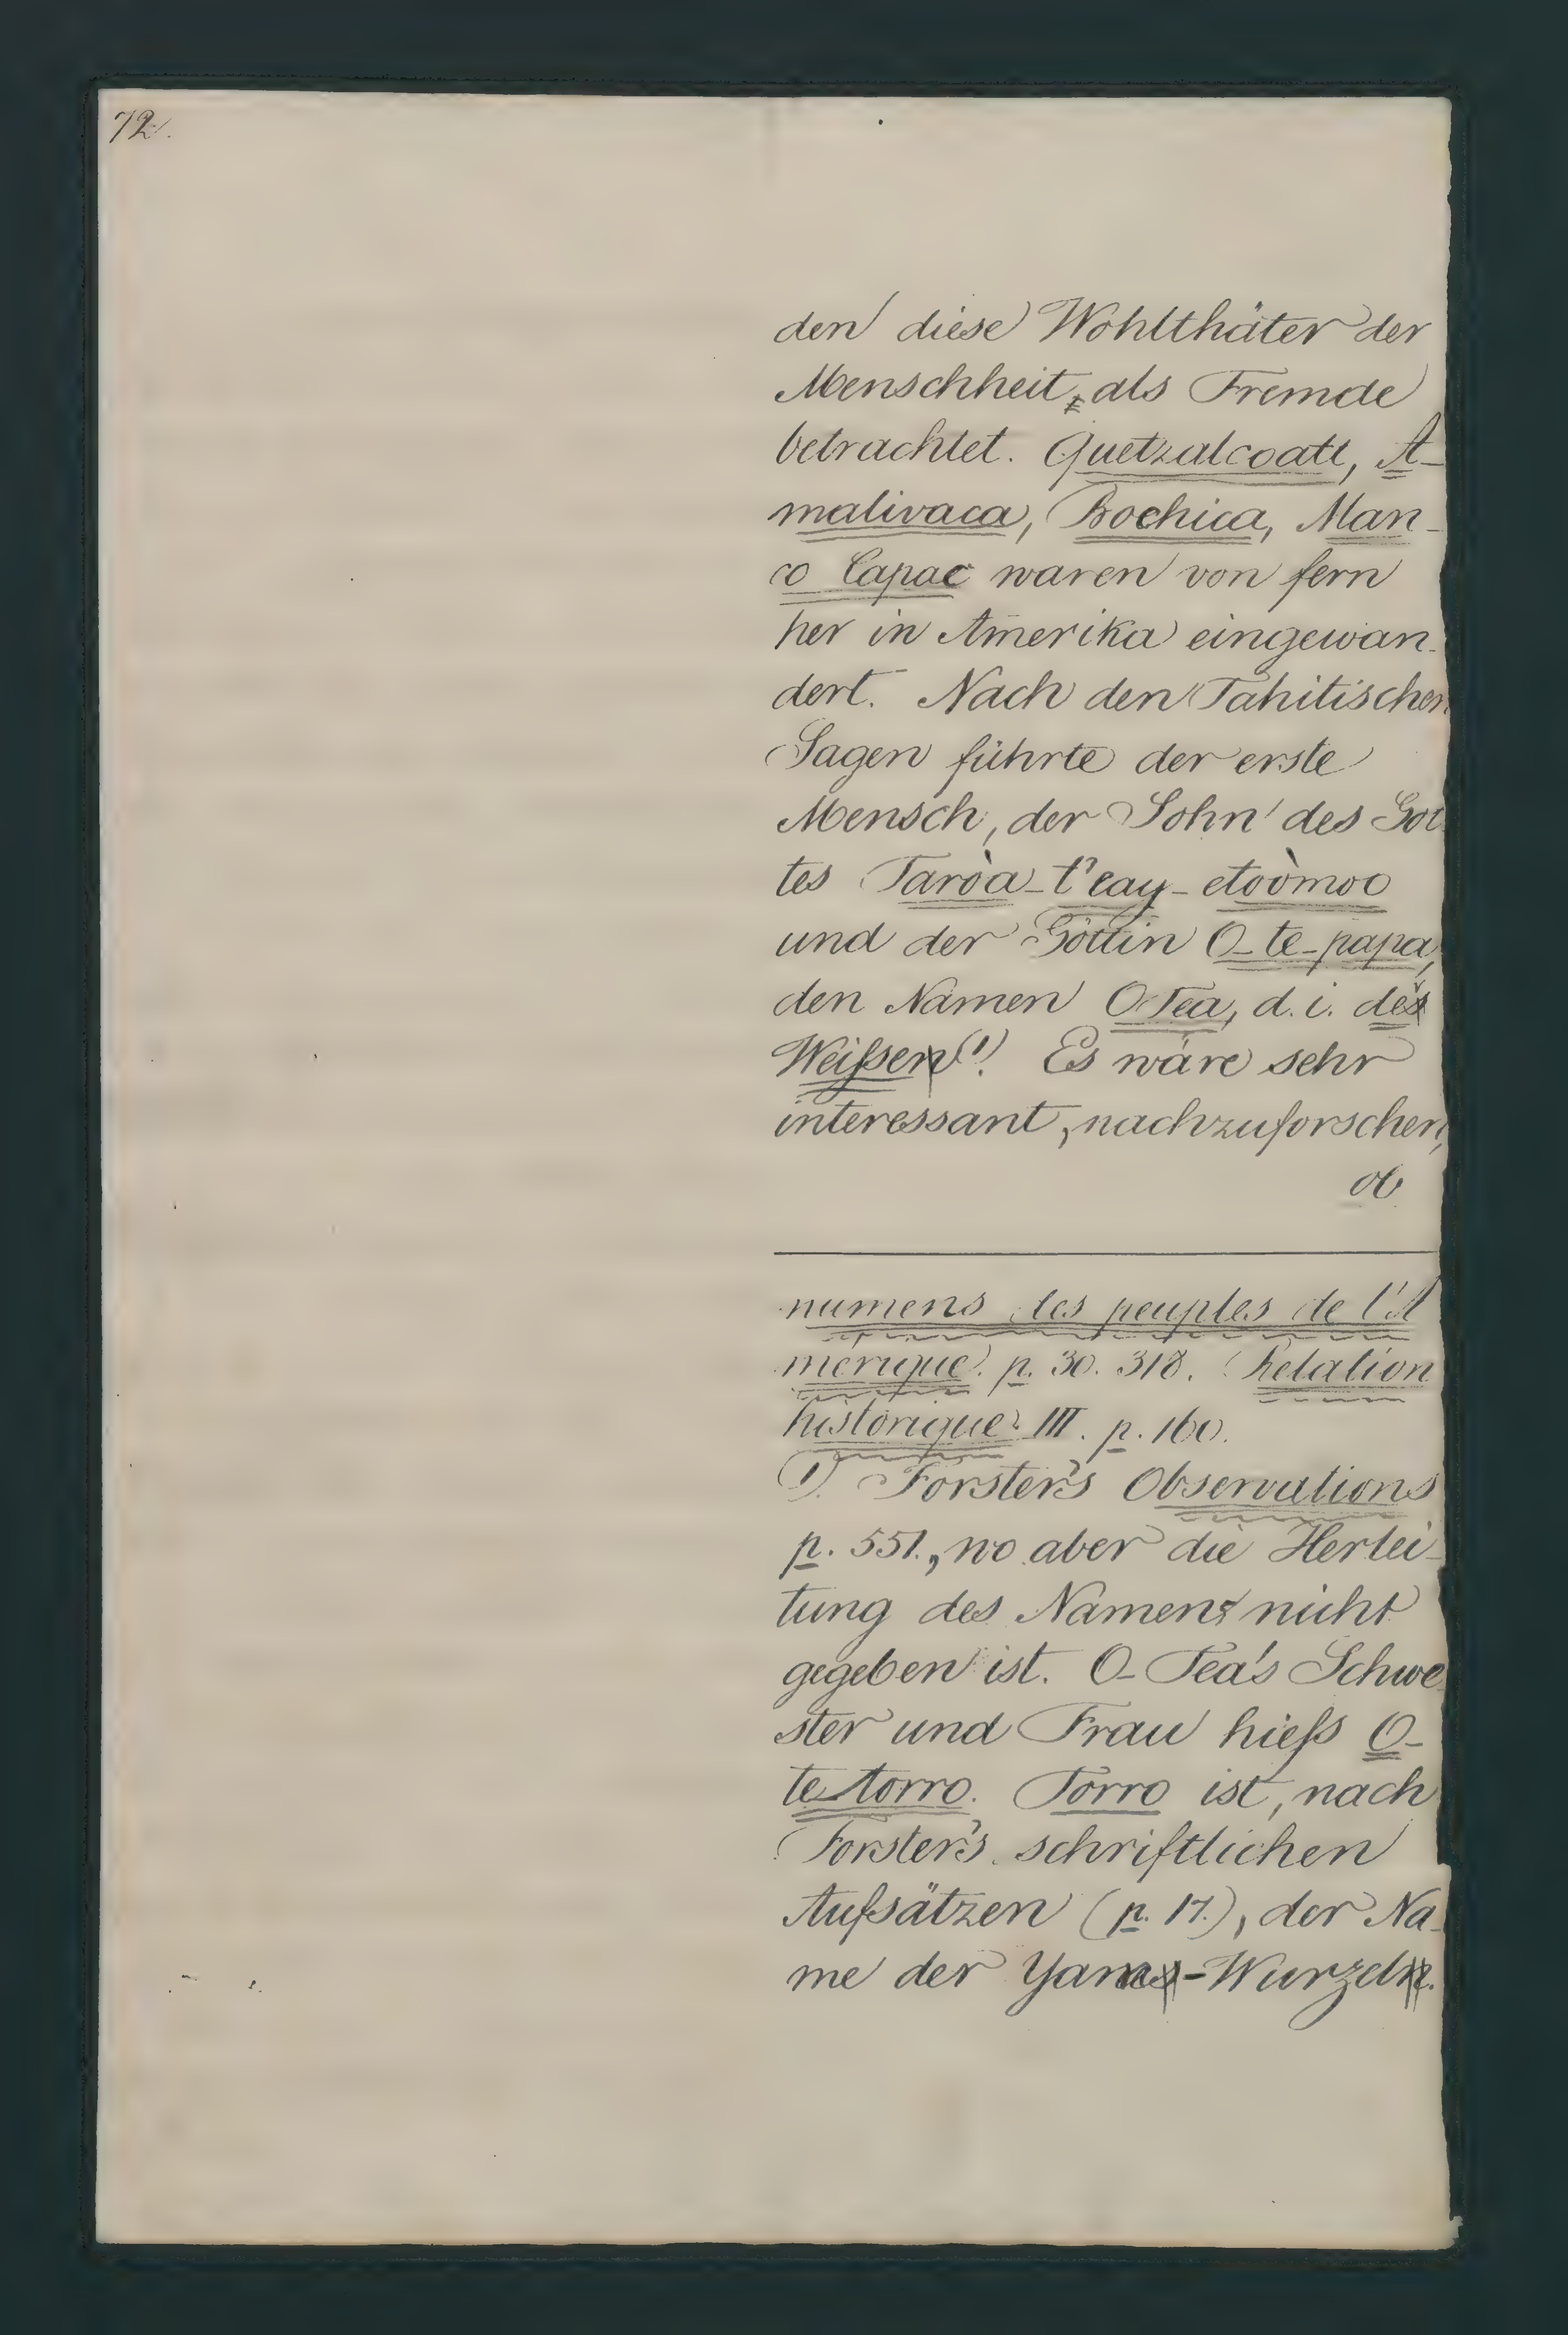 72.
den diese Wohlthäter der
Menschheit, als Fremde
betrachtet. Quetzalcoatl, A-
malivaca, Bochica, Man-
co Capac waren von fern
her in Amerika eingewan-
dert. Nach den Tahitischen
Sagen führte der erste
Mensch, der Sohn des Got
tes Taròa-t'eay-etoòmoo
und der Göttin O-te-papa,
den Namen O Tea, d. i. der
Weiſse(1). Es wäre sehr
interessant, nachzuforschen,
ob
numens des peuples de l'A
mérique. p. 30. 318. Relation
historique III. p. 160.
1). Forster's Observations
p. 551., wo aber die Herlei-
tung des Namens nicht
gegeben ist. O-Tea's Schwe
ster und Frau hieſs O-
te torro. Torro ist, nach
Forster's schriftlichen
Aufsätzen (p. 17.), der Na-
me der Yam-Wurzel.